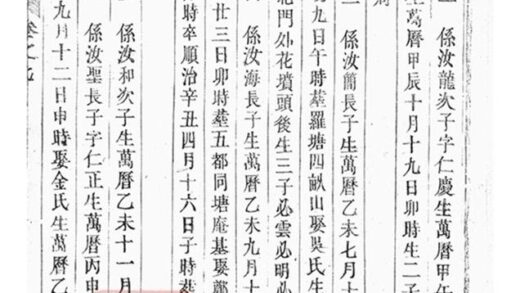 一 係汝龍次子字仁慶生萬曆甲午
二生萬曆甲辰十月十九日卯時生二子
一 係汝簡長子生萬曆乙未七月十
初九日午時葬羅塘四畝山娶吳氏生
北門外花墳頭後生三子必雲必明必
一 係汝海長子生萬曆乙未九月十
廿三日卯時葬五都同塘庵基娶鄭
時卒順治辛丑四月十六日子時葬
一 係汝和次子生萬曆乙未十一月
係汝聖長子字仁正生萬曆丙申
九月十二日申時娶金氏生萬曆乙
卷之九